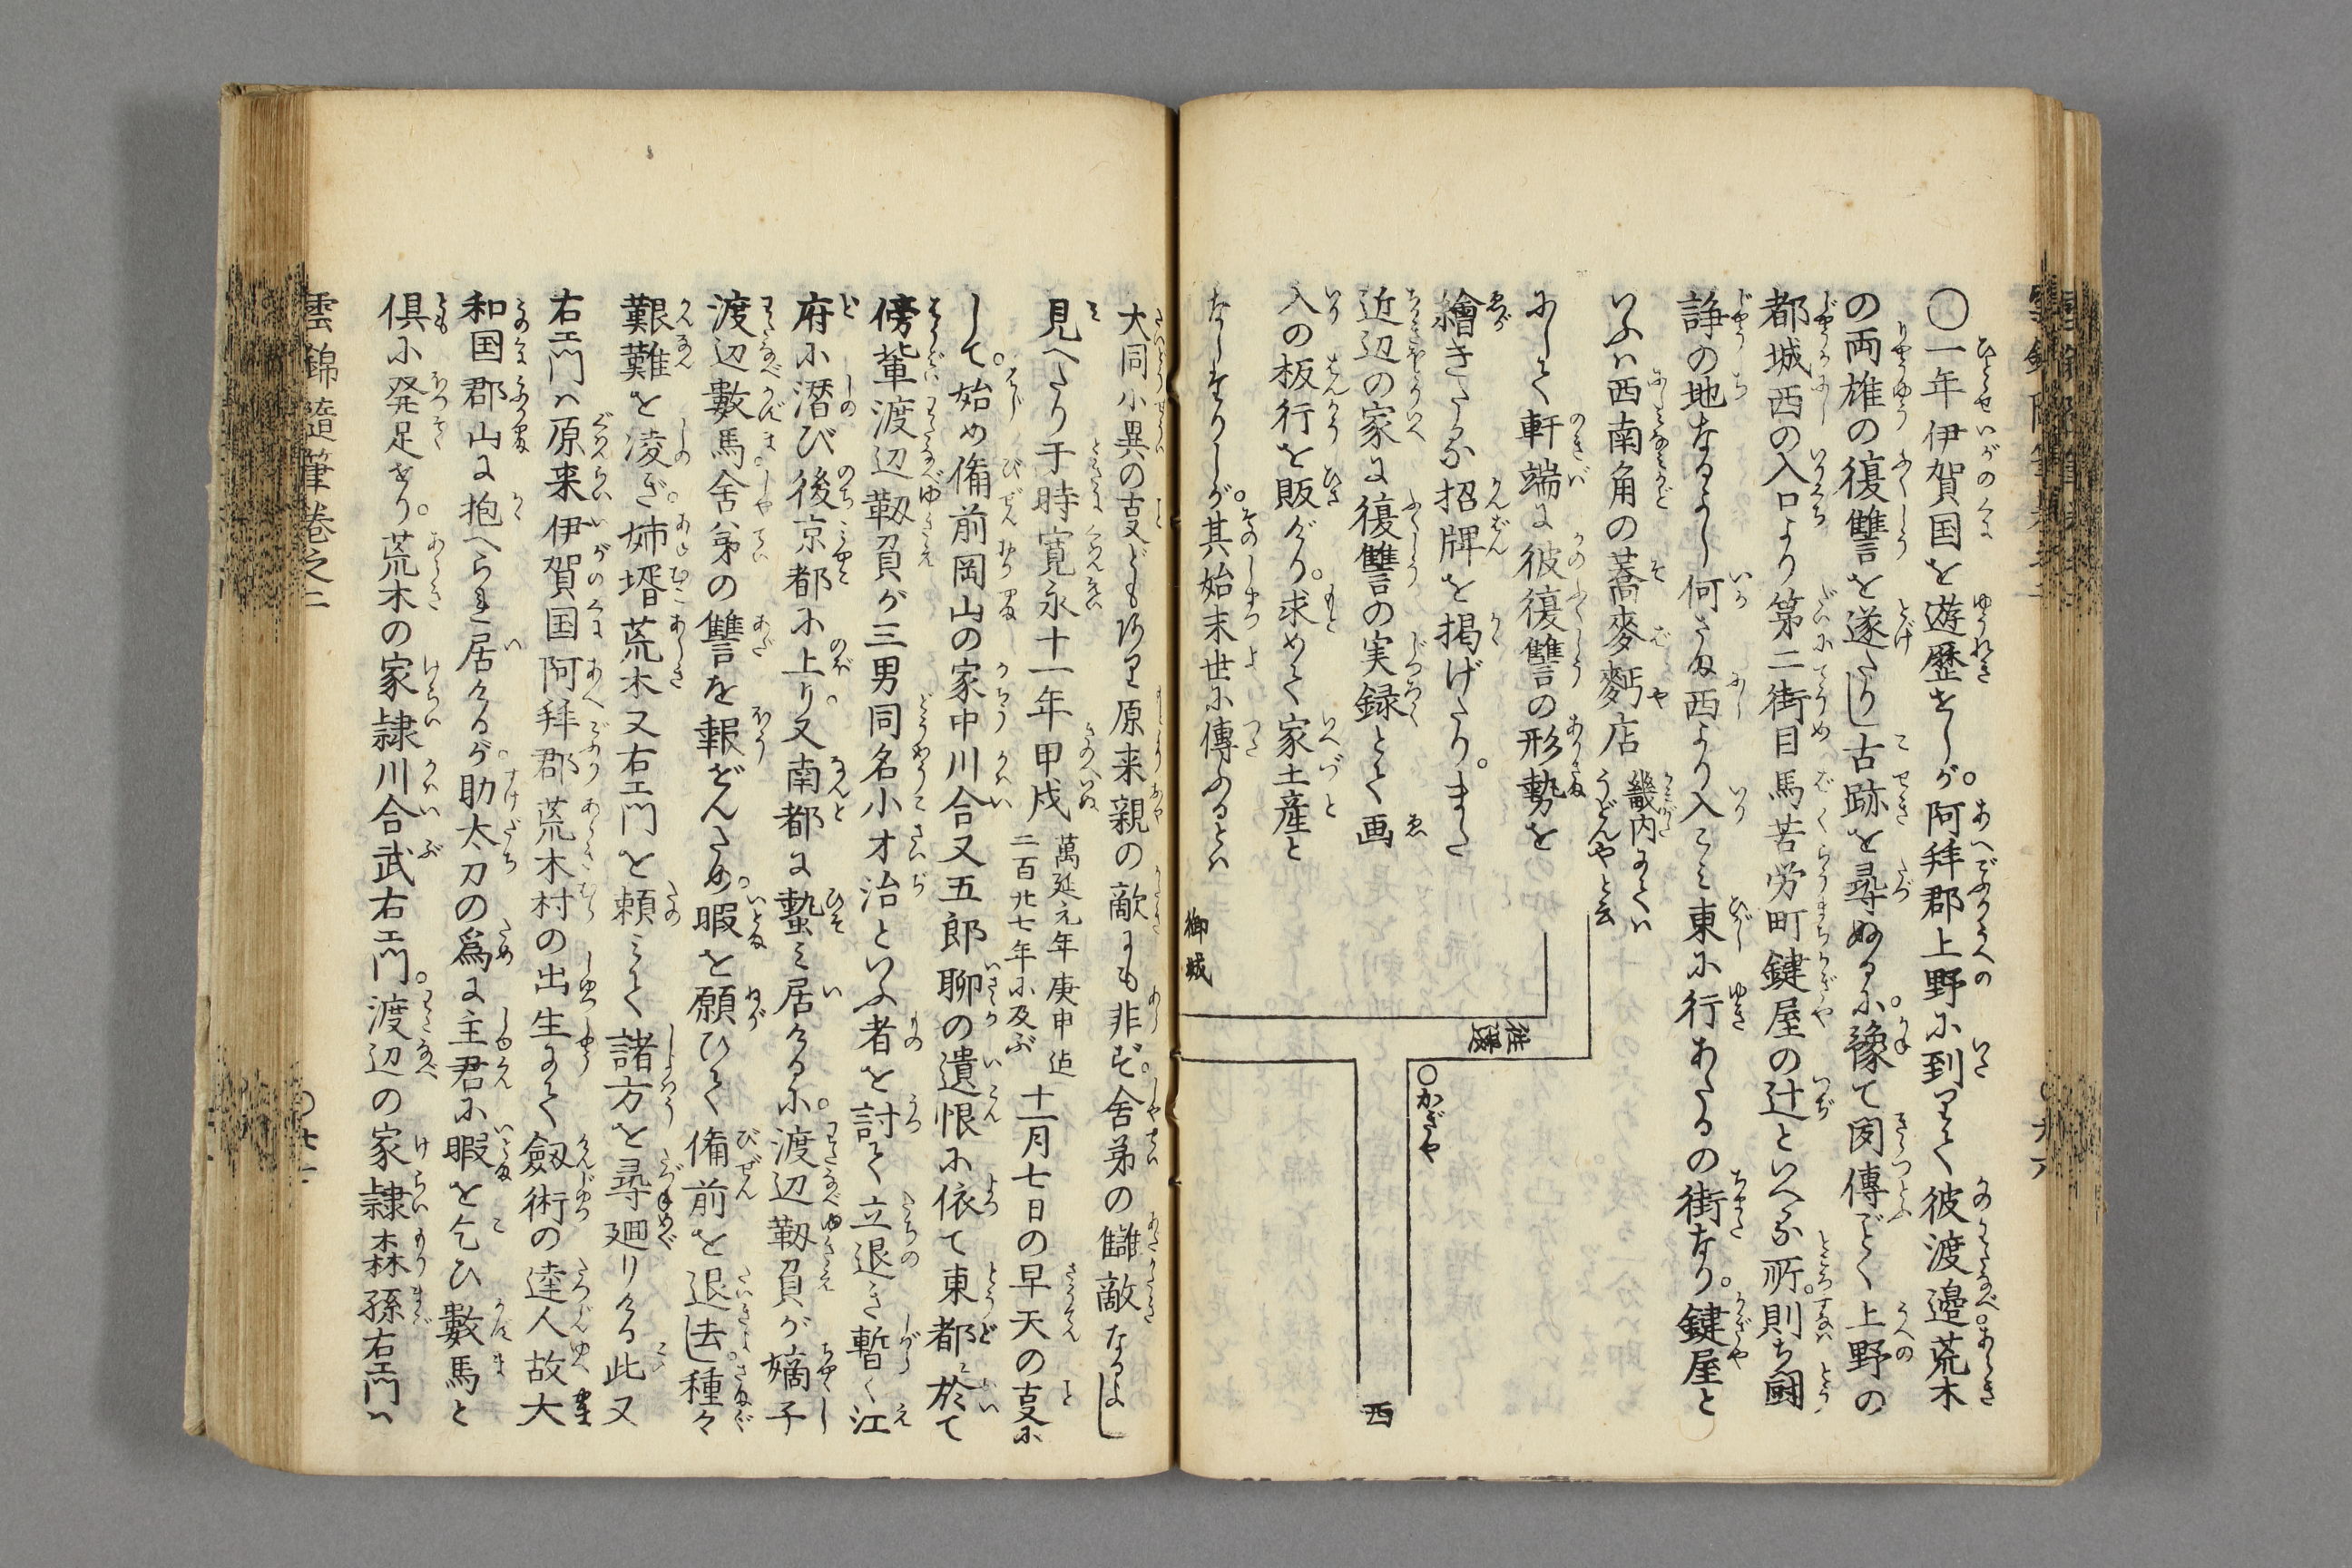 〇一年伊賀国を遊歴せしが。阿拜郡上野に到りて彼渡邉荒木
の両雄の復讐を遂たりし古跡を尋ぬるに。豫て聞傳ごとく上野の
都城西の入口より第二街目馬苦労町鍵屋の辻といへる所。則ち闘
諍の地なるよし何さま西より入こミ東に行あたるの街なり。鍵屋と
いふハ西南角の蕎麥麪店
畿内にてハ
うどんやと云
にして軒端に彼復讐の形勢を
繪きたる招牌を掲げたり。また
近辺の家に復讐の実録とて画
入の板行を販げり。求めて家土産と
なしをりしが。其始末世に傳ふるとハ
御城
往還
〇かぎや
西
大同小異の叓ども有り原来親の敵にも非ず。舍弟の讎敵なるよし
見へたり于時寛永十一年甲戌
萬延元年庚申迠
二百廿七年に及ぶ
十一月七日の早天の叓に
して。始め備前岡山の家中川合又五郎聊の遺恨に依て東都に於て
傍輩渡辺靱負が三男同名小才治といふ者を討て立退き暫く江
府に潜び後京都に上り。又南都に蟄ミ居けるに。渡辺靱負が嫡子
渡辺數馬。舍弟の讐を報ぜんため。暇を願ひて備前を退去し。種々
艱難を凌ぎ。姉壻荒木又右エ門を頼ミて諸方を尋廻りける此又
右エ門ハ原来伊賀国阿拜郡荒木村の出生にて劔術の達人故大
和国郡山に抱へられ居けるが。助太刀の為に主君に暇を乞ひ數馬と
倶に発足せり。荒木の家隷川合武右エ門。渡辺の家隷森孫右エ門ハ
雲錦随筆巻之二